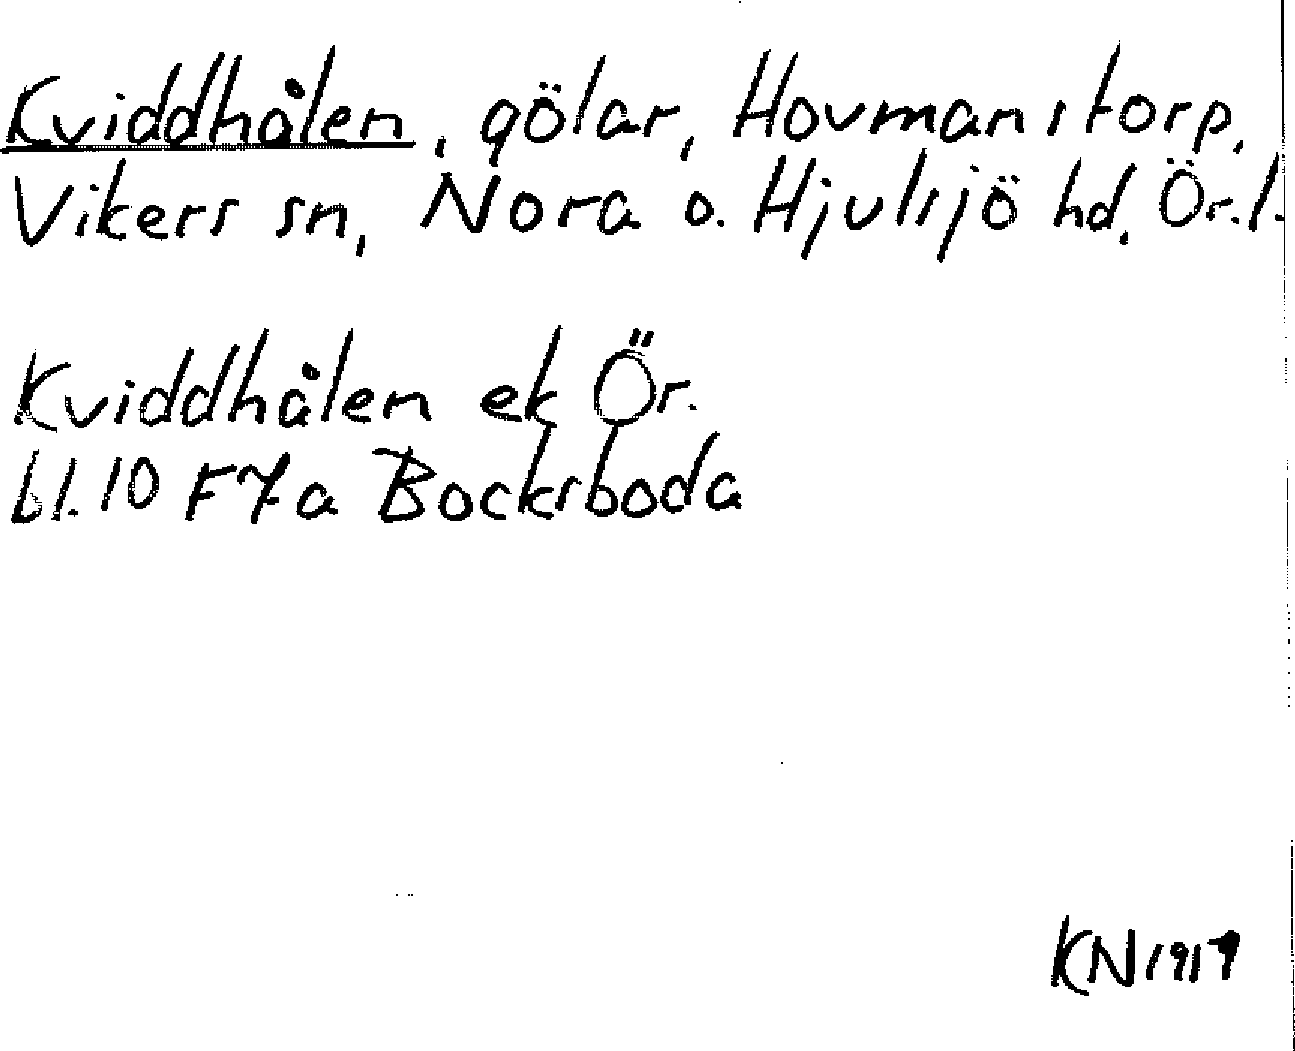 Kviddhålen, gölar, Hovmanstorp,
Vikers sn, Nora o. Hjulsjö hd, Ör.l.
Kviddhålen ek Ör.
bl.10 F7a Bocksboda
KN1917